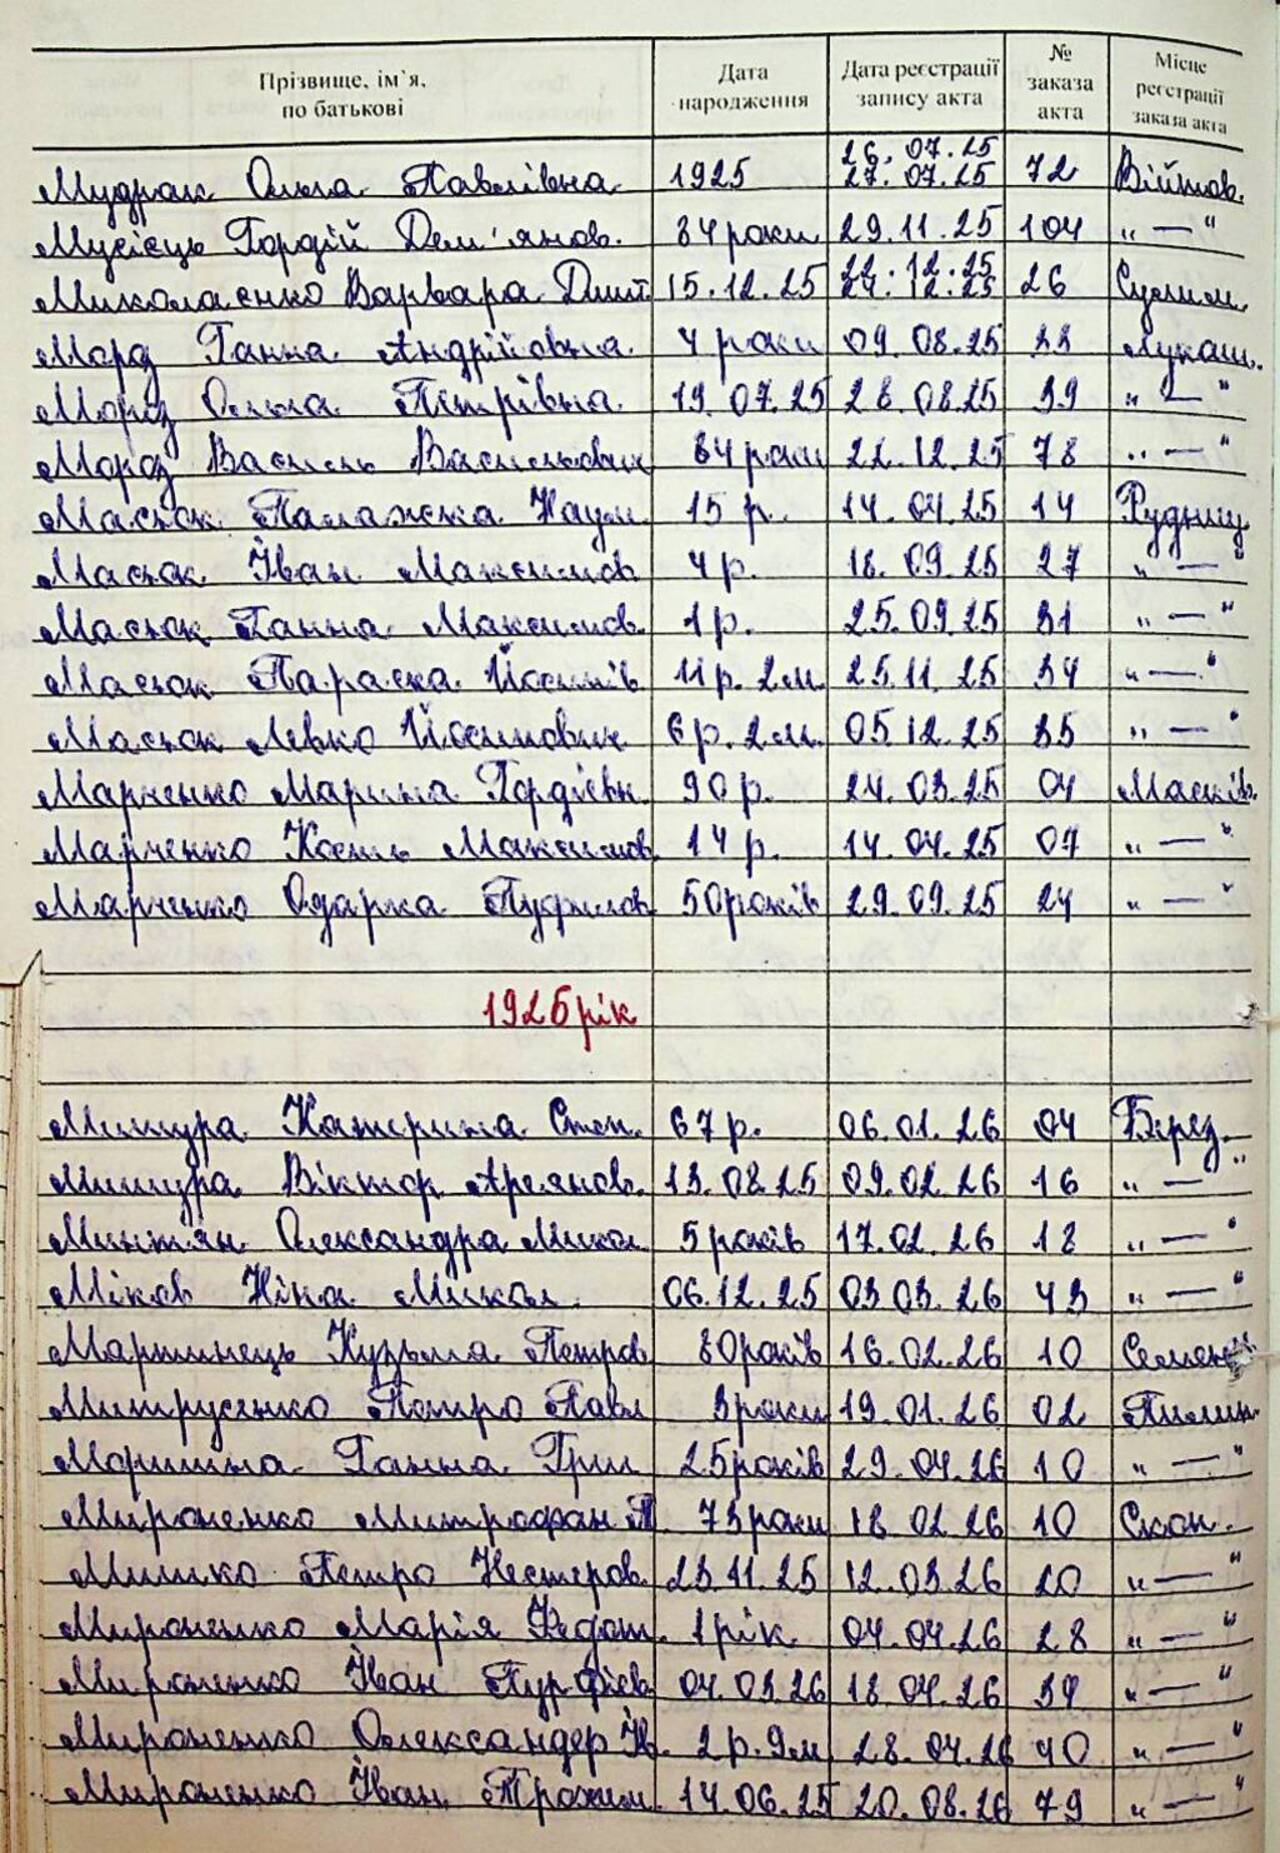 Прізвище, ім`я, по батькові Дата народження Дата реєстрації запису акта № заказа акта Місце реєстрації заказа акта
26.07.25
Мудрак Ольга Павлівна 1925 27.07.25 72 Війтов.
Мусієць Гордій Дем'янов. 84 роки 29.11.25 104 " — "
22.12.25
Миколаєнко Варвара Дмит. 15.12.25 24.12.25 26 Сулим.
Мороз Ганна Андріївна 4 роки 09.08.25 33 Лукаш.
Мороз Ольга Петрівна 19.07.25 28.08.25 39 " — "
Мороз Василь Васильович 84 роки 22.12.25 78 " — "
Масюк Палажека Наум. 15 р. 14.04.25 14 Рудниц
Масюк Іван Максимов 4 р. 18.09.25 27 " — "
Масюк Ганна Максимов. 1 р. 25.09.25 31 " — "
Масюк Параска Йосипів. 11 р. 2 м. 25.11.25 34 " — "
Масюк Левко Йосипович 6 р. 2 м. 05.12.25 35 " — "
Марченко Марина Гордієвн. 90 р. 24.03.25 04 Масків.
Марченко Кость Максимов. 14 р. 14.04.25 07 " — "
Марченко Одарка 50 років 29.09.25 24 " — "
1926 рік
Мишура Катерина Степ. 67 р. 06.01.26 04 Берез.
Мишура Віктор 13.08.25 09.02.26 16 " — "
Олександра Микол 5 років 17.02.26 18 " — "
Міков Ніна Микол. 06.12.25 03.03.26 43 " — "
Мартинець Кузьма Петров 80 років 16.02.26 10 Семен
Митрусенко Петро Павл 3 роки 19.01.26 02 Пилип.
Ганна Гри 25 років 29.04.26 10 " — "
Мироненко Митрофан П 73 роки 18.02.26 10 Скоп.
Мишко Петро Нестеров. 23.11.25 12.03.26 20 " — "
Мироненко Марія Федот. 1 рік 04.04.26 28 " — "
Мироненко Іван 04.03.26 18.04.26 39 " — "
Мироненко Олександер Ів. 2 р. 9 м 28.04.26 40 " — "
Мироненко Іван Трохим. 14.06.25 20.08.26 79 " — "